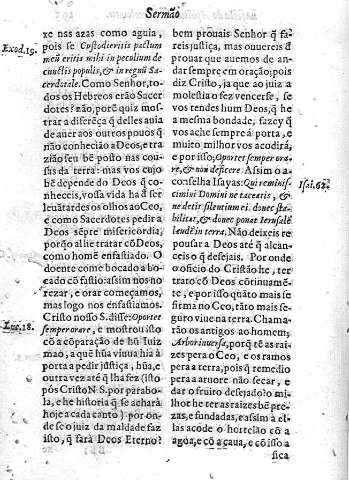 Sermão
xe nas azas como aguia,
Exod. 19.
pois se Custodieritis pactum
meũ eritis mihi in peculium de
cunctis populis, & in regnũ Sa-
cerdotale. Como Senhor, to-
dos os Hebreos erão Sacer
dotes? não, porẽ quiz mos-
trar a diferẽça q̃ delles auia
de auer aos outros pouos q̃
não conhecião a Deos, e tra
zião seu bẽ posto nas cou-
sas da terra: mas vos cujo
bẽ depende do Deos q̃ co-
nheceis, vossa vida ha d ser
leuãtardes os olhos ao Ceo,
e como Sacerdotes pedir a
Deos sẽpre misericordia,
porq̃ o al he tratar cõ Deos,
como homẽ enfastiado. O
doente come bocado a bo-
cado cõ fastio: assim nos no
rezar, e orar começamos,
mas logo nos enfastiamos.
Luc. 18.
Cristo nosso S. disse: Oportet
semper orare, e mostrou isto
cõ a cõparação de hũ Iuiz
mao, a que hũa viuua hia à
porta a pedir justiça, hũa, e
outra vez atè q̃ lha fez (isto
pós Cristo N S. por parabo-
la, e he historia q̃ se acharà
hoje a cada canto) por on-
de se o juiz da maldade faz
isto, q̃ farà Deos Eterno?
bem prouais Senhor q̃ fa-
reis justiça, mas ouuereis d
prouar que auemos de an-
dar sempre em oração; pois
diz Cristo, ja que ao juiz a
molestia o fez vencerse, se
vos rendes hum Deos, q̃ he
a mesma bondade, fazey q̃
vos ache sempre á porta, e
muito milhor vos acodirá,
e por isso; Oportet semper ora-
re, & non deficere. Assim o a-
conselha Isayas: Qui reminis-
Isai. 62.
cimini Domini ne taceatis, &
ne detis silentium ei donec sta-
biliat, & donec ponat Ierusalẽ
laudẽ in terra. Não deixeis re
pousar a Deos atè q̃ alcan-
ceis o q̃ desejais. Por onde
o oficio do Cristão he, ter
trato cõ Deos cõtinuamẽ-
te, e por isso quãto mais se
firma no Ceo, tãto mais se
guro viue na terra. Chama-
rão os antigos ao homem;
Arbor inuersa, porq̃ tẽ as rai-
zes pera o Ceo, e os ramos
pera a terra, pois q̃ remedio
pera a aruore não secar, e
dar o fruito desejado? o mi-
lhor he ter as raizes bẽ pre-
zas, e fundadas, e assim à el-
las acode o hortelão cõ a
agoa, e cõ a caua, e cõ isso a
fica